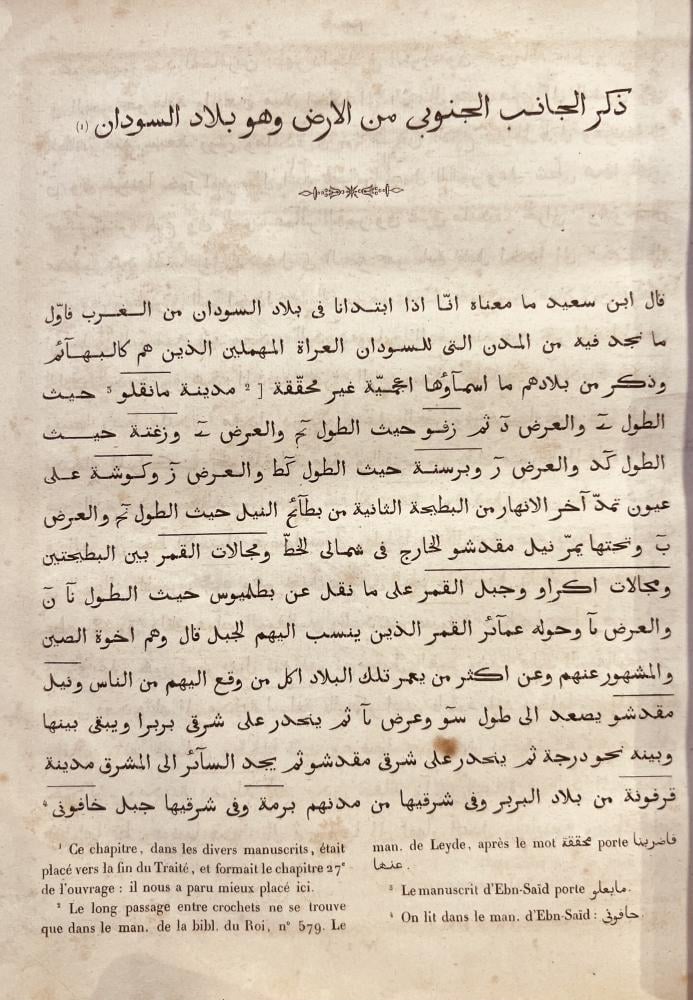 ذكر الجانب الجنوبى من الارض وهو بلاد السودان (١)
قال ابن سعيد ما معناه انّا اذا ابتدانا فى بلاد السودان من الغرب فاوّل
ما نجد فيه من المدن التى للسودان العراة المهملين الذين هم كالبهآئم
وذكر من بلادهم ما اسمآؤها اعجميّة غير محقّقة [² مدينة مانقلو ³ حيث
الطول والعرض ثم زفو حيث الطول والعرض وزغتة حيث
الطول كد والعرض وبرسنة حيث الطول كط والعرض وكوشة على
عيون تمدّ آخر الانهار من البطيحة الثانية من بطآئح النيل حيث الطول والعرض
وتحتها يمرّ نيل مقدشو الخارج فى شمالى الخطّ ومجالات القمر بين البطيحتين
ومجالات اكراو وجبل القمر على ما نقل عن بطلميوس حيث الطول نا ن
والعرض يا وحوله عمآئر القمر الذين ينسب اليهم الجبل قال وهم اخوة الصين
والمشهور عنهم وعن اكثر من يعمر تلك البلاد اكل من وقع اليهم من الناس ونيل
مقدشو يصعد الى طول سو وعرض يا ثم ينحدر على شرقى بربرا ويبقى بينها
وبينه نحو درجة ثم ينحدر على شرقى مقدشو ثم يجد السآئر الى المشرق مدينة
قرفونة من بلاد البربر وفى شرقيها من مدنهم برمة وفى شرقيها جبل خافونى ⁴
¹ Ce chapitre, dans les divers manuscrits, était
placé vers la fin du Traité, et formait le chapitre 27ᵉ
de l'ouvrage : il nous a paru mieux placé ici.
² Le long passage entre crochets ne se trouve
que dans le man. de la bibl. du Roi, n° 579. Le
man. de Leyde, après le mot محققة porte فاضربنا
عنها.
³ Le manuscrit d'Ebn-Saïd porte مايعلو.
⁴ On lit dans le man. d'Ebn-Saïd : حافونى.